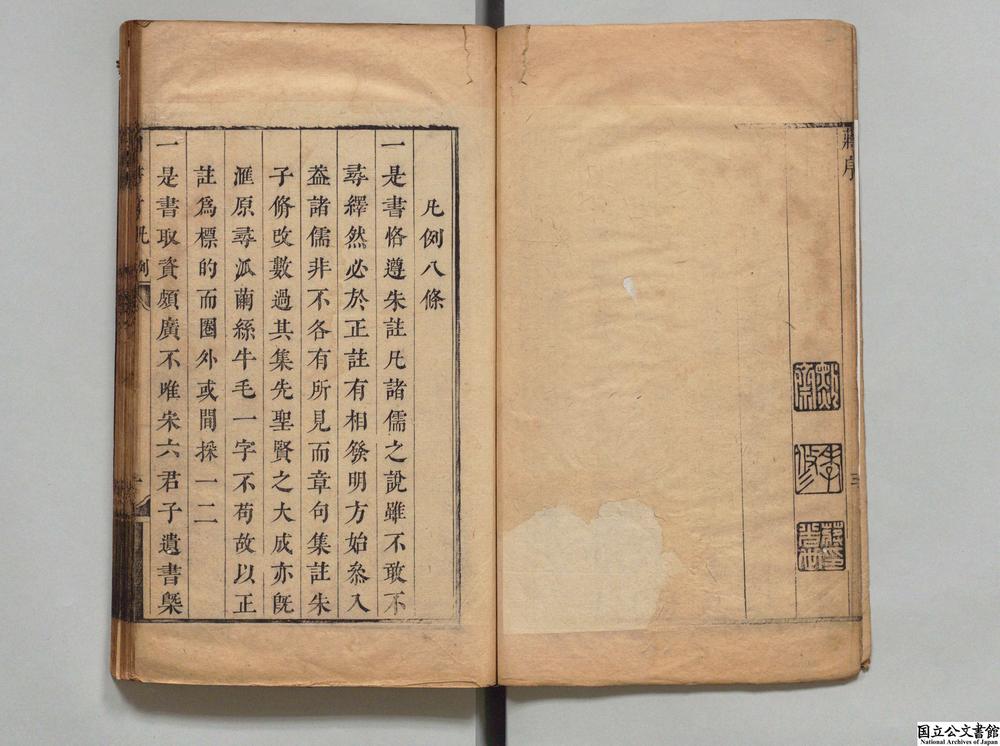 蔣序
凡例八條
一是書恪遵朱註凡諸儒之說雖不敢不
尋繹然必於正註有相發明方始叅入
葢諸儒非不各有所見而章句集註朱
子脩改數過其集先聖賢之大成亦旣
滙原尋泒繭絲牛毛一字不苟故以正
註爲標的而圈外或間採一二
一是書取資頗廣不唯宋六君子遺書槩
凡例
国立公文書館
National Archives of Japan